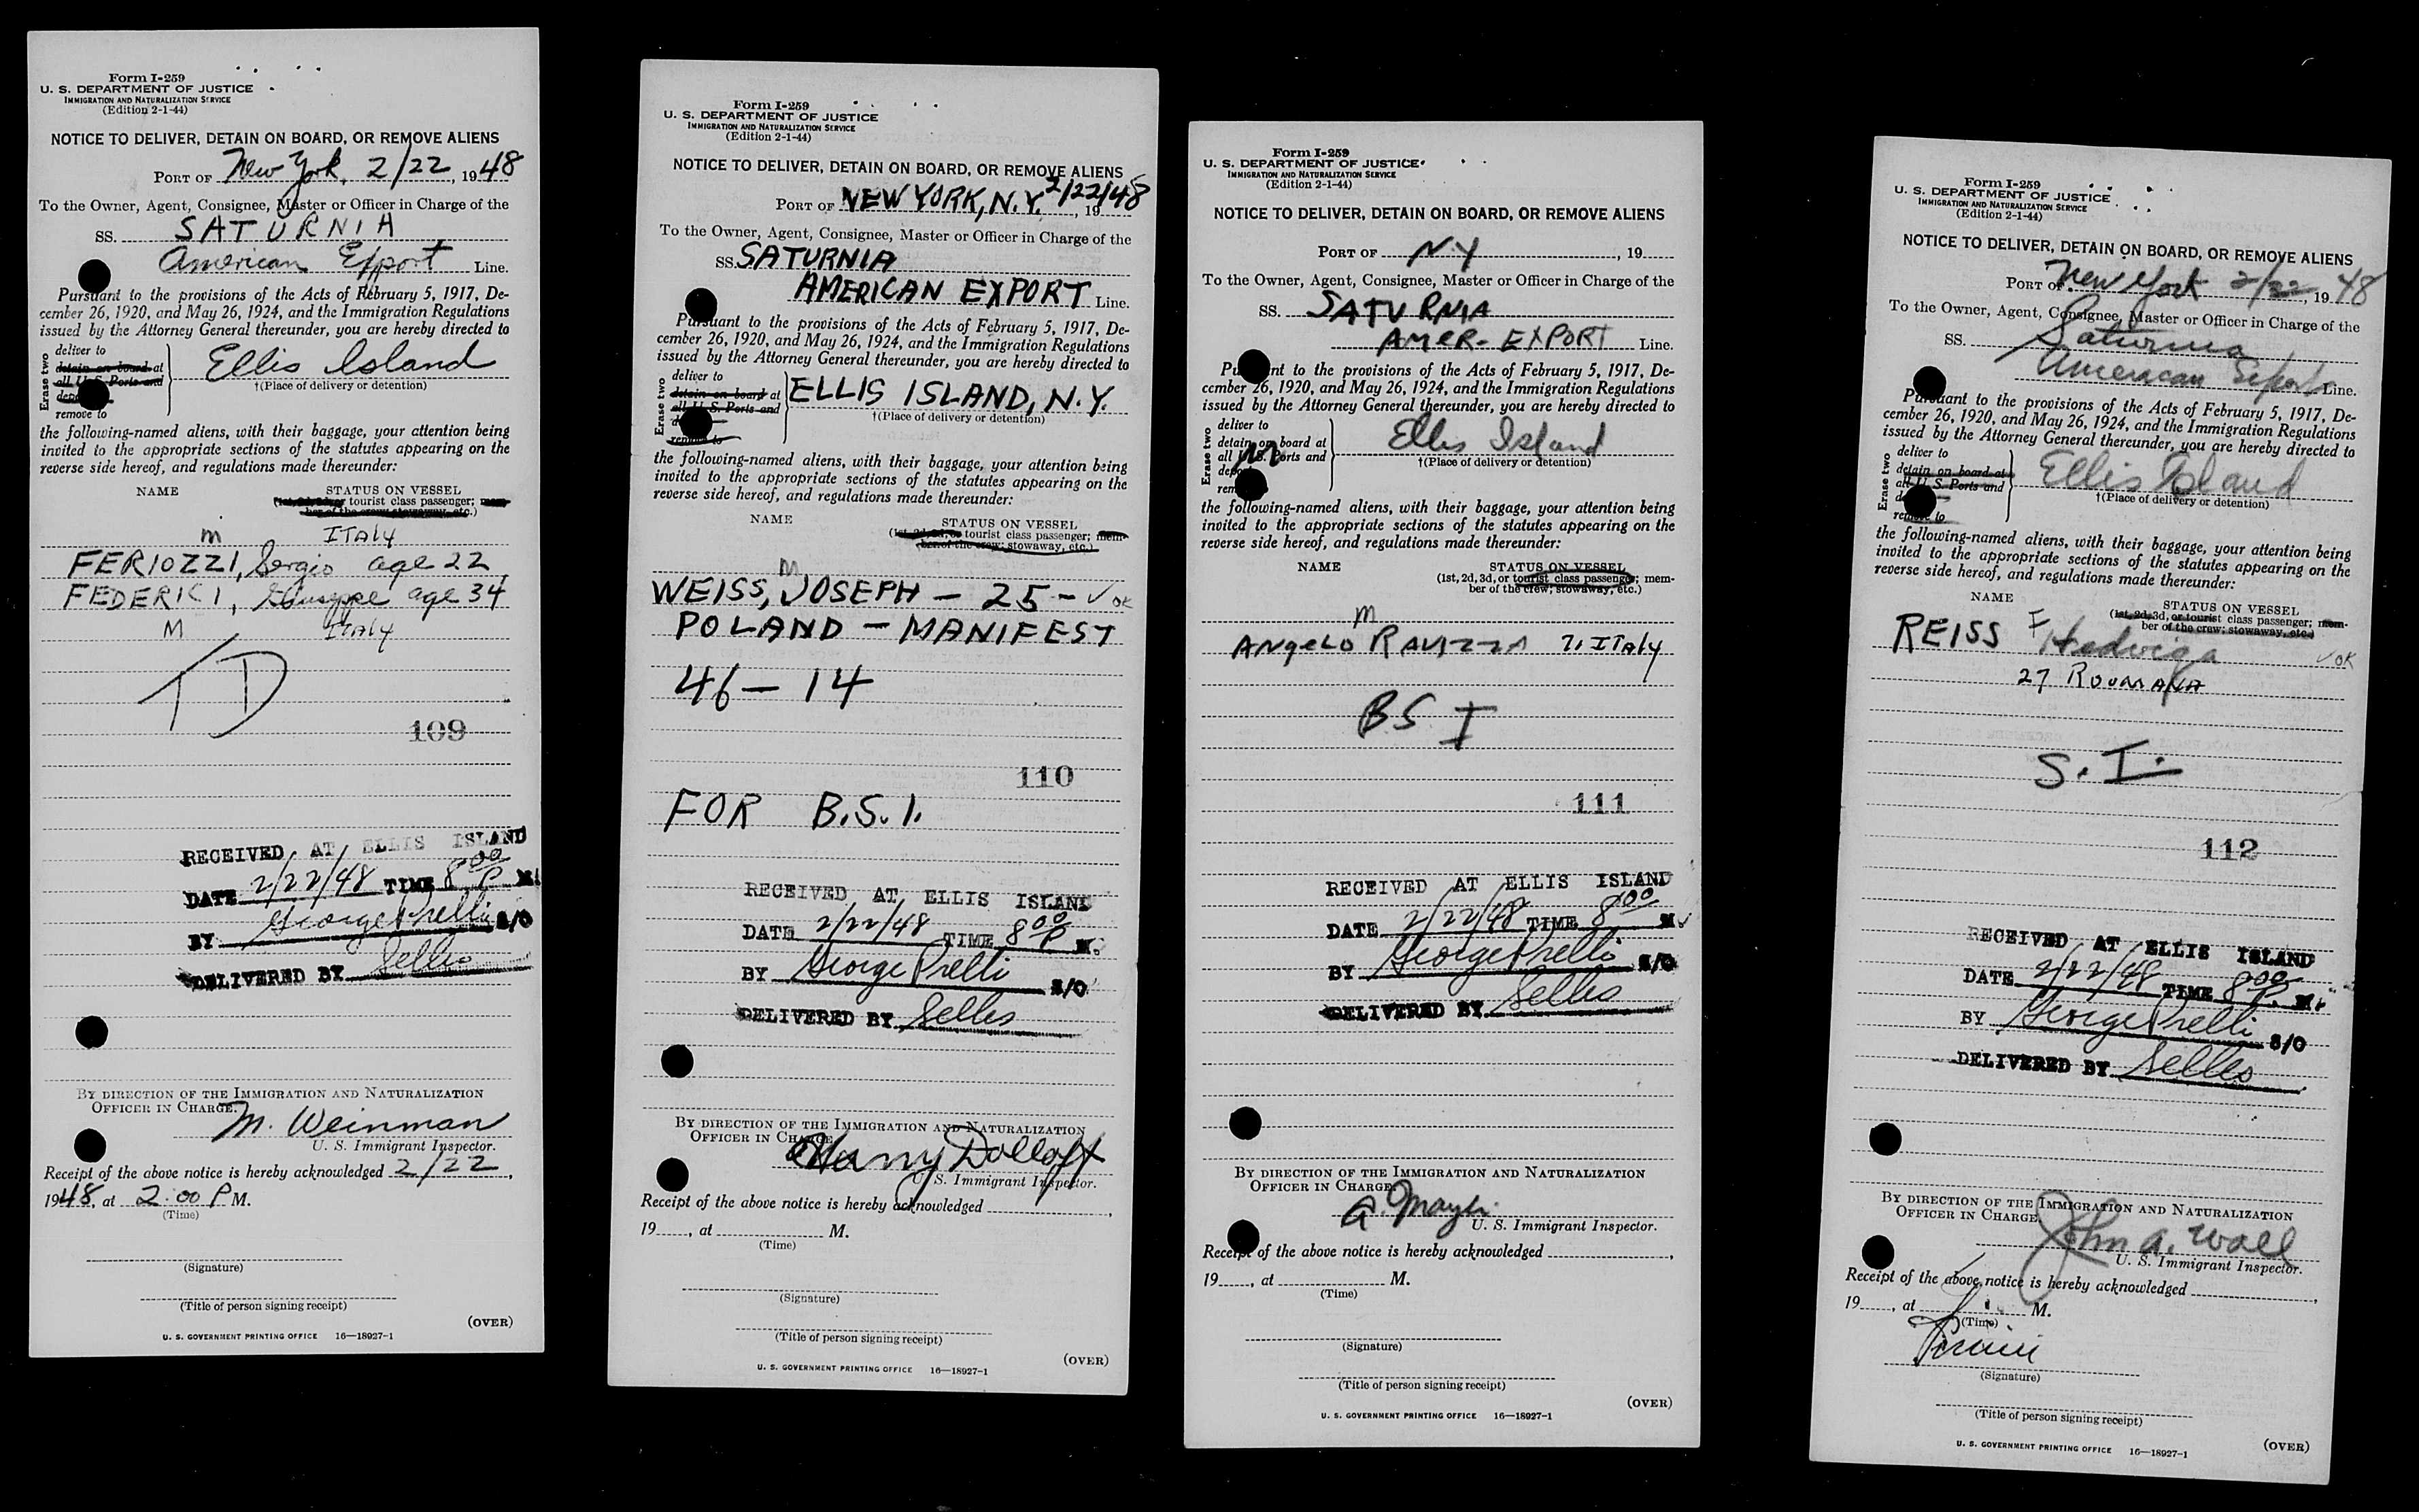 Form I-259
U. S. DEPARTMENT OF JUSTICE
IMMIGRATION AND NATURALIZATION SERVICE
(Edition 2-1-44)
NOTICE TO DELIVER, DETAIN ON BOARD, OR REMOVE ALIENS
PORT OF New York, 2/22, 1948
To the Owner, Agent, Consignee, Master or Officer in Charge of the
SS. SATURNIA
American Export Line.
Pursuant to the provisions of the Acts of February 5, 1917, De-
cember 26, 1920, and May 26, 1924, and the Immigration Regulations
issued by the Attorney General thereunder, you are hereby directed to
Erase two
deliver to
detain on board at
all U. S. Ports and
remove to
Ellis Island
†(Place of delivery or detention)
the following-named aliens, with their baggage, your attention being
invited to the appropriate sections of the statutes appearing on the
reverse side hereof, and regulations made thereunder:
NAME STATUS ON VESSEL
(1st, 2d, 3d, or tourist class passenger; mem-
ber of the crew; stowaway, etc.)
m ITALY
FERIOZZI, Sergio age 22
FEDERICI, Giuseppe age 34
M ITALY
TD
109
RECEIVED AT ELLIS ISLAND
DATE 2/22/48 TIME 8 00 P M.
BY George Prelli S/O
DELIVERED BY Selles
BY DIRECTION OF THE IMMIGRATION AND NATURALIZATION
OFFICER IN CHARGE.
M. Weinman
U. S. Immigrant Inspector.
Receipt of the above notice is hereby acknowledged 2/22,
1948, at 2:00 P M.
(Time)
(Signature)
(Title of person signing receipt)
(OVER)
U. S. GOVERNMENT PRINTING OFFICE 16—18927-1
Form I-259
U. S. DEPARTMENT OF JUSTICE
IMMIGRATION AND NATURALIZATION SERVICE
(Edition 2-1-44)
NOTICE TO DELIVER, DETAIN ON BOARD, OR REMOVE ALIENS
PORT OF NEW YORK, N.Y. 2/22/48, 19
To the Owner, Agent, Consignee, Master or Officer in Charge of the
SS. SATURNIA
AMERICAN EXPORT Line.
Pursuant to the provisions of the Acts of February 5, 1917, De-
cember 26, 1920, and May 26, 1924, and the Immigration Regulations
issued by the Attorney General thereunder, you are hereby directed to
Erase two
deliver to
detain on board at
all U. S. Ports and
remove to
ELLIS ISLAND, N.Y.
†(Place of delivery or detention)
the following-named aliens, with their baggage, your attention being
invited to the appropriate sections of the statutes appearing on the
reverse side hereof, and regulations made thereunder:
NAME STATUS ON VESSEL
(1st, 2d, 3d, or tourist class passenger; mem-
ber of the crew; stowaway, etc.)
M
WEISS, JOSEPH — 25 — ✓ OK
POLAND — MANIFEST
46 — 14
110
FOR B.S.I.
RECEIVED AT ELLIS ISLAND
DATE 2/22/48 TIME 8 00 P M.
BY George Prelli S/O
DELIVERED BY Selles
BY DIRECTION OF THE IMMIGRATION AND NATURALIZATION
OFFICER IN CHARGE.
Harry Dolloff
U. S. Immigrant Inspector.
Receipt of the above notice is hereby acknowledged ,
19 , at M.
(Time)
(Signature)
(Title of person signing receipt)
(OVER)
U. S. GOVERNMENT PRINTING OFFICE 16—18927-1
Form I-259
U. S. DEPARTMENT OF JUSTICE
IMMIGRATION AND NATURALIZATION SERVICE
(Edition 2-1-44)
NOTICE TO DELIVER, DETAIN ON BOARD, OR REMOVE ALIENS
PORT OF N.Y , 19
To the Owner, Agent, Consignee, Master or Officer in Charge of the
SS. SATURNIA
AMER- EXPORT Line.
Pursuant to the provisions of the Acts of February 5, 1917, De-
cember 26, 1920, and May 26, 1924, and the Immigration Regulations
issued by the Attorney General thereunder, you are hereby directed to
Erase two
deliver to
detain on board at
all U. S. Ports and
Ellis Island
†(Place of delivery or detention)
the following-named aliens, with their baggage, your attention being
invited to the appropriate sections of the statutes appearing on the
reverse side hereof, and regulations made thereunder:
NAME STATUS ON VESSEL
(1st, 2d, 3d, or tourist class passenger; mem-
ber of the crew; stowaway, etc.)
m
ANgeLO RAVIZZA 71 ITALY
BSI
111
RECEIVED AT ELLIS ISLAND
DATE 2/22/48 TIME 8 00 M.
BY George Prelli S/O
DELIVERED BY Selles
BY DIRECTION OF THE IMMIGRATION AND NATURALIZATION
OFFICER IN CHARGE.
U. S. Immigrant Inspector.
Receipt of the above notice is hereby acknowledged ,
19 , at M.
(Time)
(Signature)
(Title of person signing receipt)
(OVER)
U. S. GOVERNMENT PRINTING OFFICE 16—18927-1
Form I-259
U. S. DEPARTMENT OF JUSTICE
IMMIGRATION AND NATURALIZATION SERVICE
(Edition 2-1-44)
NOTICE TO DELIVER, DETAIN ON BOARD, OR REMOVE ALIENS
PORT OF New York 2/22, 1948
To the Owner, Agent, Consignee, Master or Officer in Charge of the
SS. Saturnia
American Export Line.
Pursuant to the provisions of the Acts of February 5, 1917, De-
cember 26, 1920, and May 26, 1924, and the Immigration Regulations
issued by the Attorney General thereunder, you are hereby directed to
Erase two
deliver to
detain on board at
all U. S. Ports and
remove to
Ellis Island
†(Place of delivery or detention)
the following-named aliens, with their baggage, your attention being
invited to the appropriate sections of the statutes appearing on the
reverse side hereof, and regulations made thereunder:
NAME STATUS ON VESSEL
(1st, 2d, 3d, or tourist class passenger; mem-
ber of the crew; stowaway, etc.)
REISS F Hedwiga ✓ OK
27 ROUMANIA
S.I.
112
RECEIVED AT ELLIS ISLAND
DATE 2/22/48 TIME 8 00 P. M.
BY George Prelli S/O
DELIVERED BY Selles
BY DIRECTION OF THE IMMIGRATION AND NATURALIZATION
OFFICER IN CHARGE.
John A. Wall
U. S. Immigrant Inspector.
Receipt of the above notice is hereby acknowledged ,
19 , at M.
(Time)
(Signature)
(Title of person signing receipt)
(OVER)
U. S. GOVERNMENT PRINTING OFFICE 16—18927-1